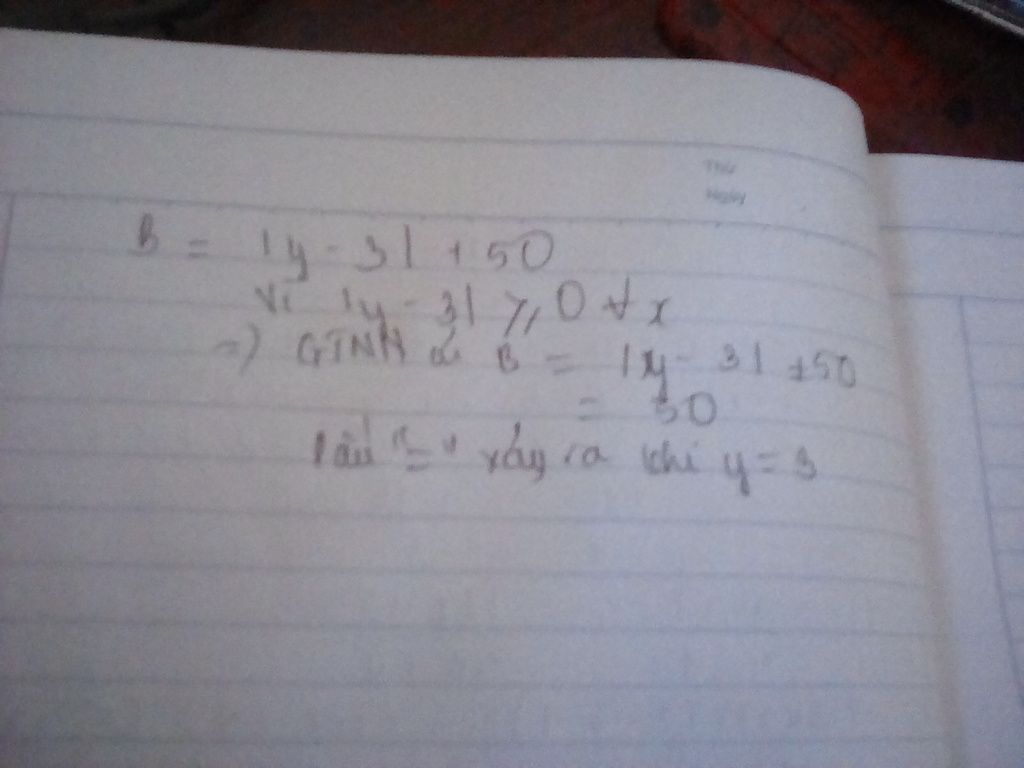 Thứ
Ngày
B = |y - 3| + 50
Vì |y - 3| ≥ 0 ∀ x
=> GTNN của B = |y - 3| + 50
= 50
Dấu "=" xảy ra khi y = 3